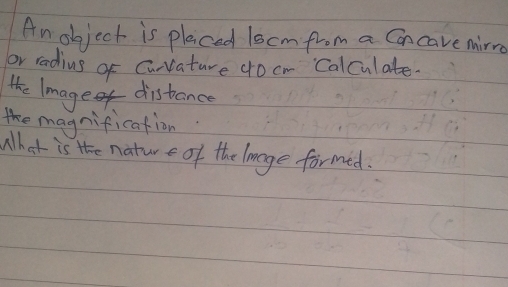 An object is placed 15cm from a Concave mirro
or radius of Curvature 40 cm Calculate.
the Image of distance
the magnification.
What is the nature of the Image formed.